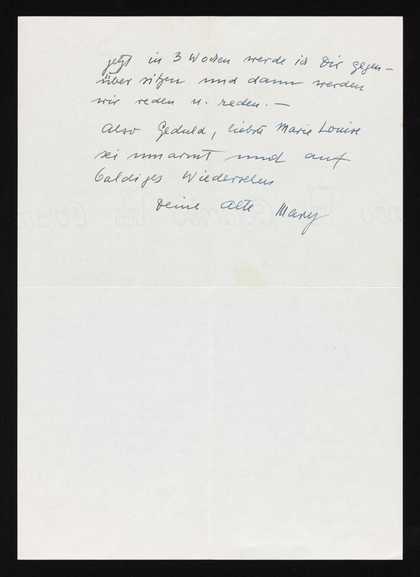 jetzt in 3 Wochen werde ich Dir gegen-
über sitzen und dann werden
wir reden u. reden. —
Also Geduld, liebste Marie Louise
sei umarmt und auf
baldiges Wiedersehen
Deine alte Mary